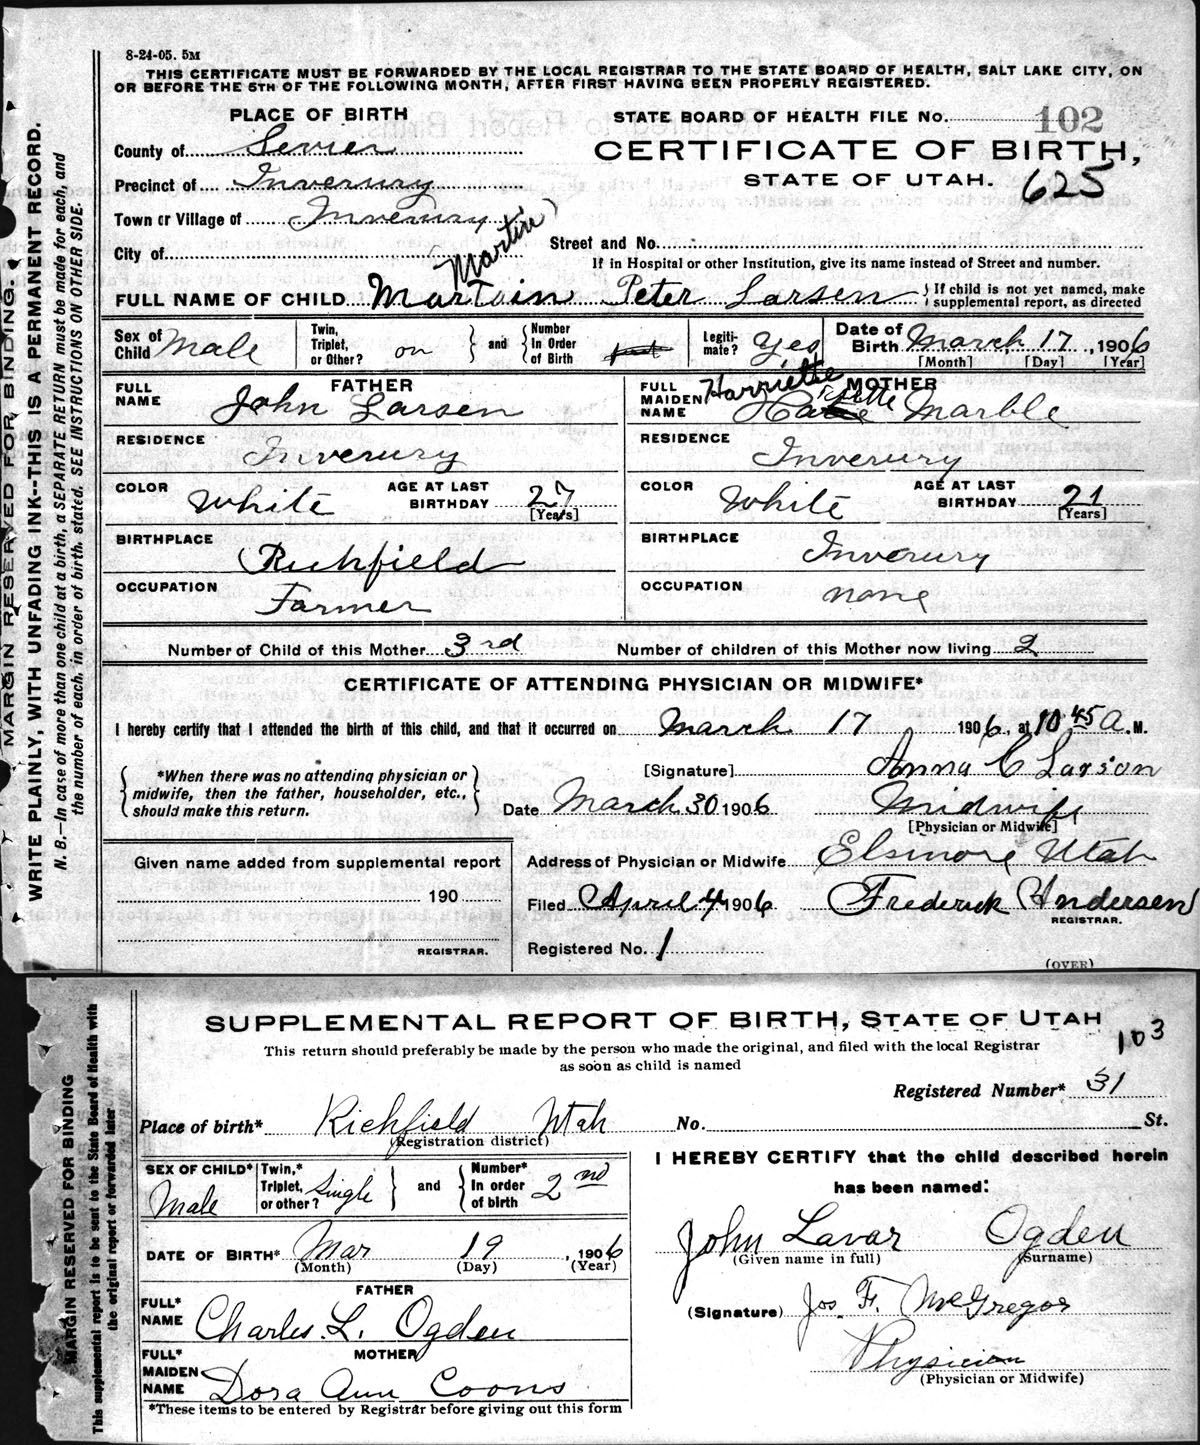 8-24-05. 5M
THIS CERTIFICATE MUST BE FORWARDED BY THE LOCAL REGISTRAR TO THE STATE BOARD OF HEALTH, SALT LAKE CITY, ON
OR BEFORE THE 5TH OF THE FOLLOWING MONTH, AFTER FIRST HAVING BEEN PROPERLY REGISTERED.
MARGIN RESERVED FOR BINDING.
WRITE PLAINLY, WITH UNFADING INK--THIS IS A PERMANENT RECORD.
N. B.—In case of more than one child at a birth, a SEPARATE RETURN must be made for each, and
the number of each, in order of birth, stated. SEE INSTRUCTIONS ON OTHER SIDE.
PLACE OF BIRTH
STATE BOARD OF HEALTH FILE No. 102
County of Sevier
CERTIFICATE OF BIRTH,
Precinct of Inverury
STATE OF UTAH. 625
Town or Village of Inverury
City of
Street and No.
If in Hospital or other Institution, give its name instead of Street and number.
Martin
FULL NAME OF CHILD Martain Peter Larsen { If child is not yet named, make
supplemental report, as directed
Sex of Child Male
Twin, Triplet, or Other? on } and { Number In Order of Birth first
Legitimate? Yes
Date of Birth March 17, 1906
[Month] [Day] [Year]
FATHER
FULL NAME John Larsen
RESIDENCE Inverury
COLOR White AGE AT LAST BIRTHDAY 27
[Years]
BIRTHPLACE Richfield
OCCUPATION Farmer
MOTHER
Harriette
FULL MAIDEN NAME Marble
RESIDENCE Inverury
COLOR White AGE AT LAST BIRTHDAY 21
[Years]
BIRTHPLACE Inverury
OCCUPATION none
Number of Child of this Mother 3rd Number of children of this Mother now living 2
CERTIFICATE OF ATTENDING PHYSICIAN OR MIDWIFE*
I hereby certify that I attended the birth of this child, and that it occurred on March 17 1906, at 10 45 A. M.
{ *When there was no attending physician or
midwife, then the father, householder, etc.,
should make this return. }
[Signature] Anna C Larson
Date March 30 1906 Midwife
[Physician or Midwife]
Given name added from supplemental report
190
REGISTRAR.
Address of Physician or Midwife Elsinore Utah
Filed April 4 1906 Frederick Andersen
REGISTRAR.
Registered No. 1
(OVER)
MARGIN RESERVED FOR BINDING
This supplemental report is to be sent to the State Board of Health with
the original report or forwarded later
SUPPLEMENTAL REPORT OF BIRTH, STATE OF UTAH
103
This return should preferably be made by the person who made the original, and filed with the local Registrar
as soon as child is named
Registered Number* 31
Place of birth* Richfield Utah No. St.
(Registration district)
SEX OF CHILD* Male
Twin,* Triplet, or other? Single } and { Number* In order of birth 2nd
DATE OF BIRTH* Mar 19, 1906
(Month) (Day) (Year)
FATHER
FULL* NAME Charles. L. Ogden
MOTHER
FULL* MAIDEN NAME Dora Ann Coons
*These items to be entered by Registrar before giving out this form
I HEREBY CERTIFY that the child described herein
has been named:
John Lavar Ogden
(Given name in full) (Surname)
(Signature) Jos F. McGregor
Physician
(Physician or Midwife)